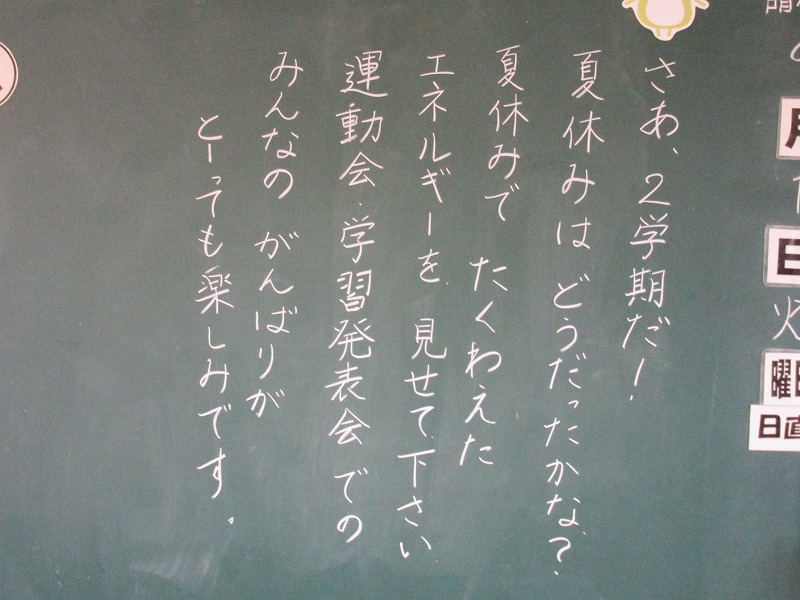 さあ、2学期だ!
夏休みは どうだったかな?
夏休みで たくわえた
エネルギーを 見せて下さい
運動会・学習発表会での
みんなの がんばりが
とーっても楽しみです。
月
日
曜日
日直